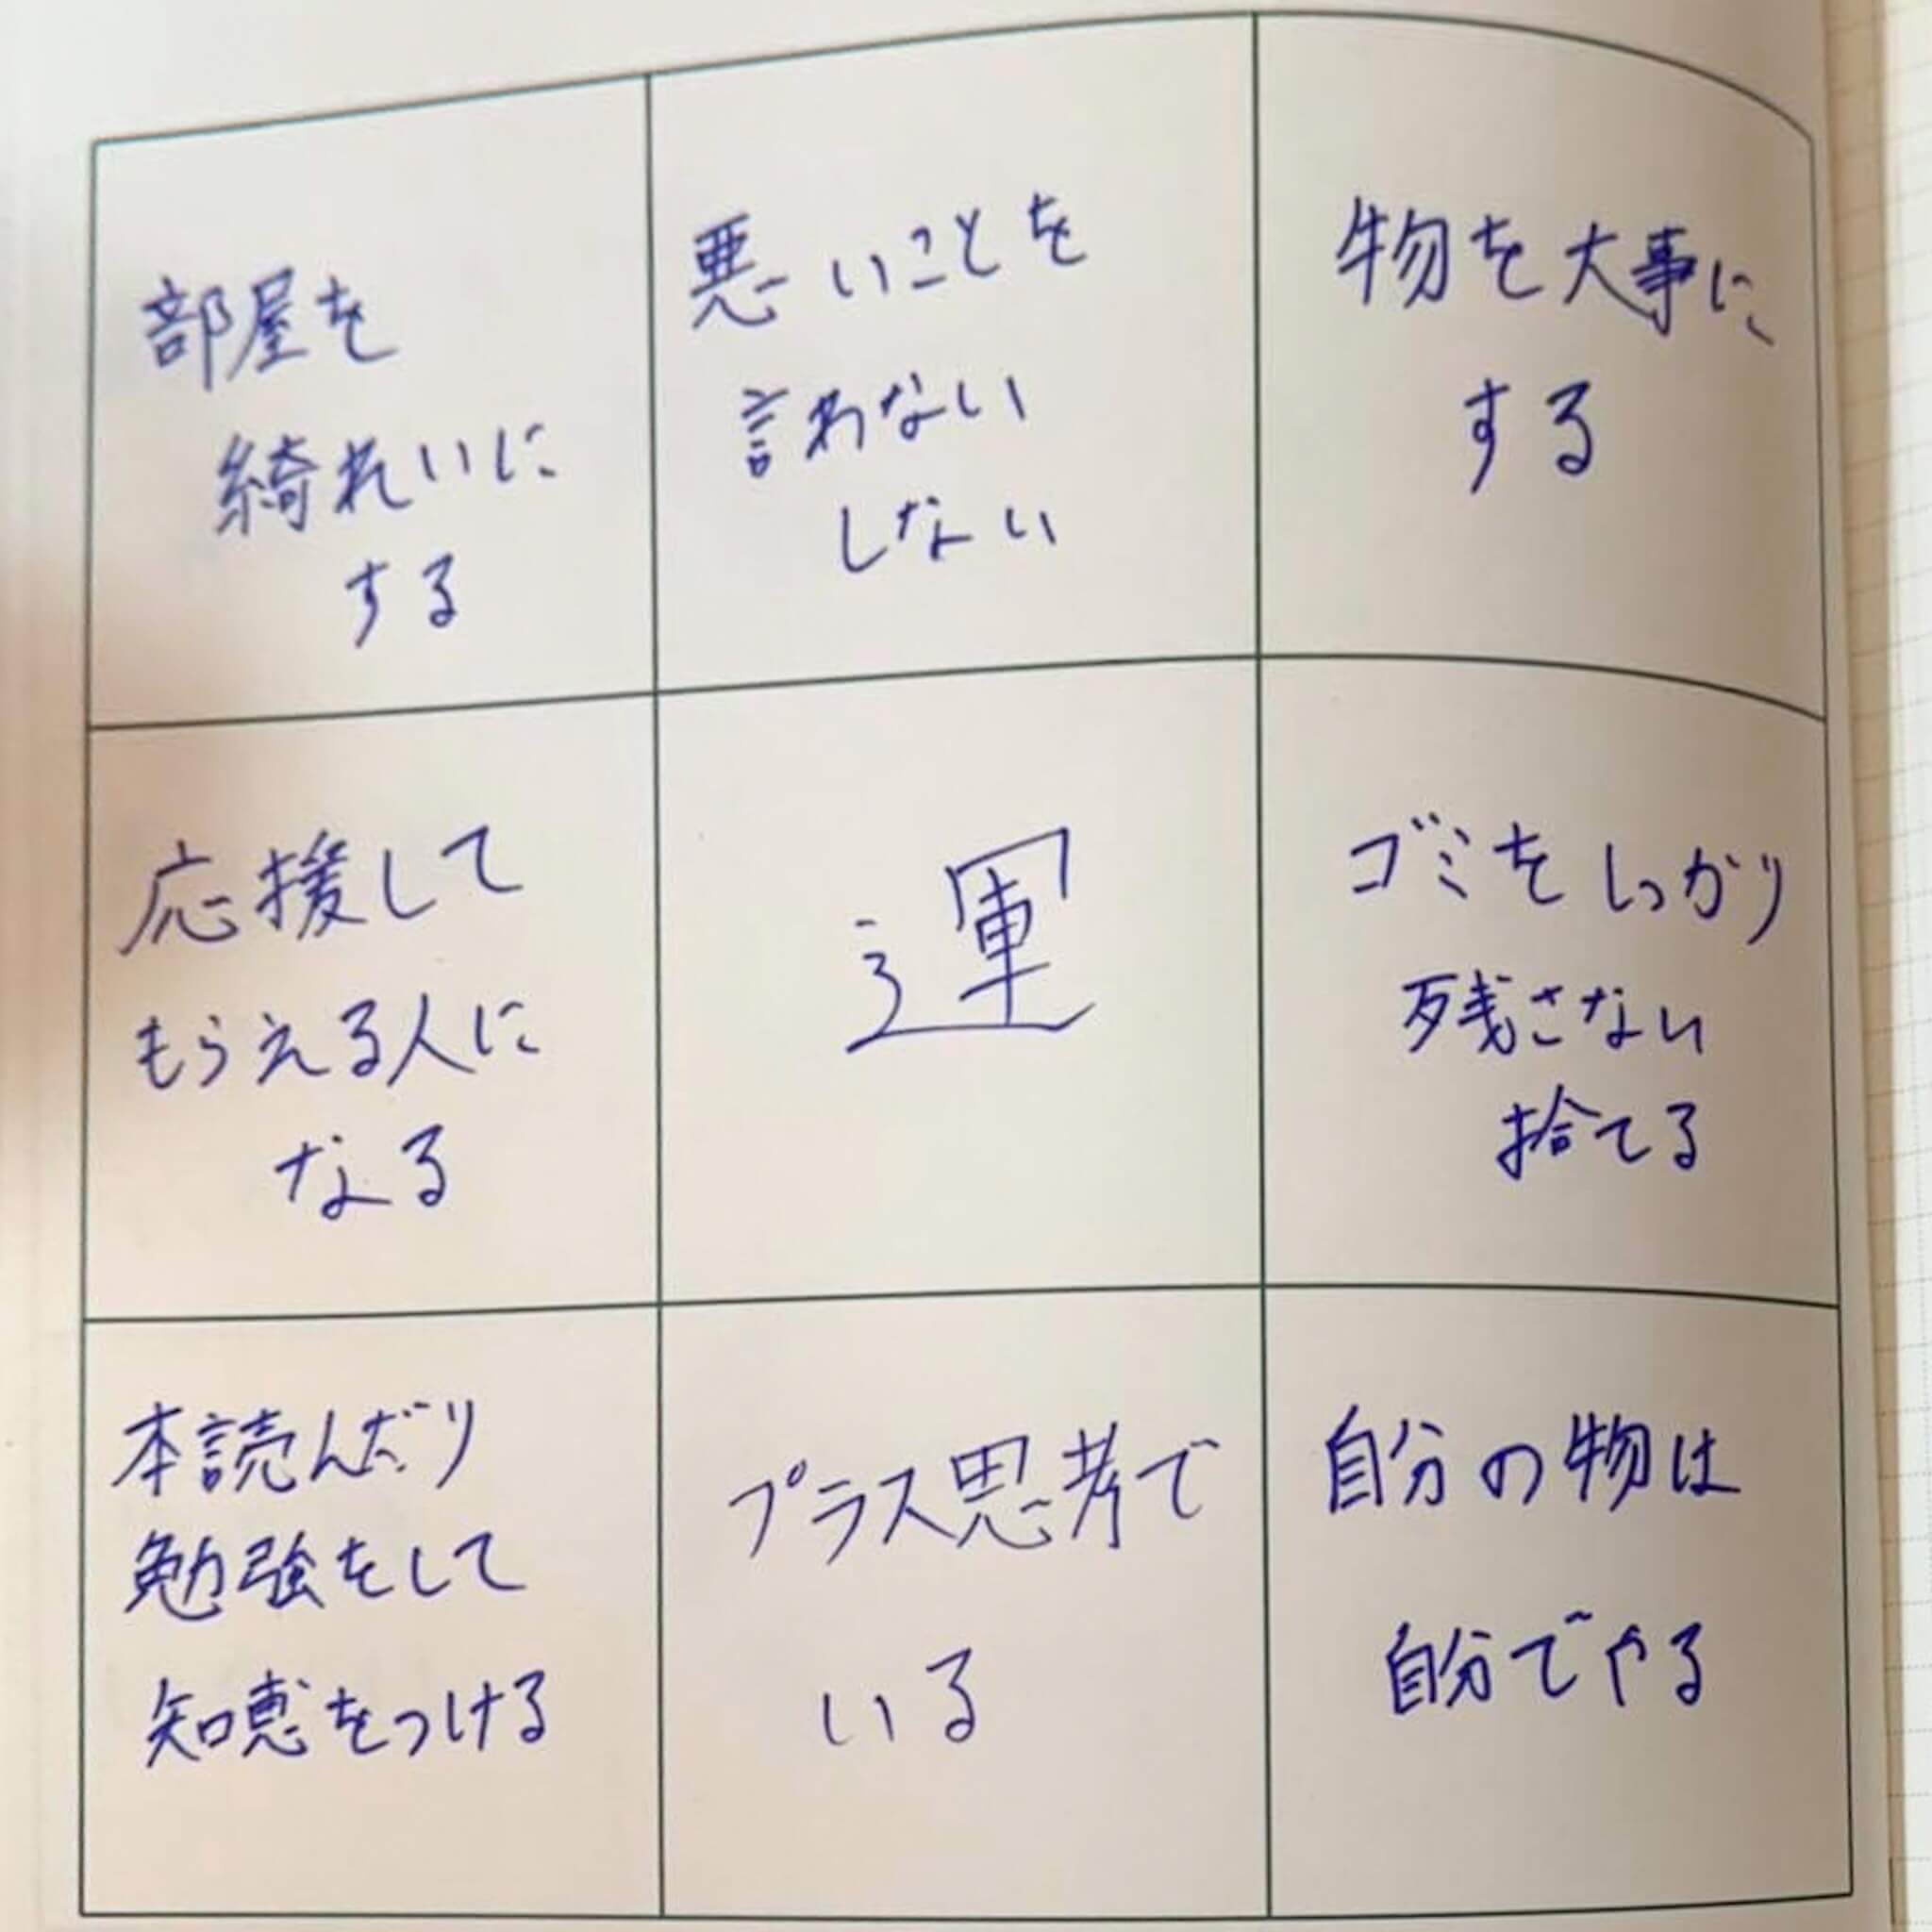 部屋を
綺れいに
する
悪いことを
言わない
しない
物を大事に
する
応援して
もらえる人に
なる
運
ゴミをしっかり
残さない
捨てる
本読んだり
勉強をして
知恵をつける
プラス思考で
いる
自分の物は
自分でやる